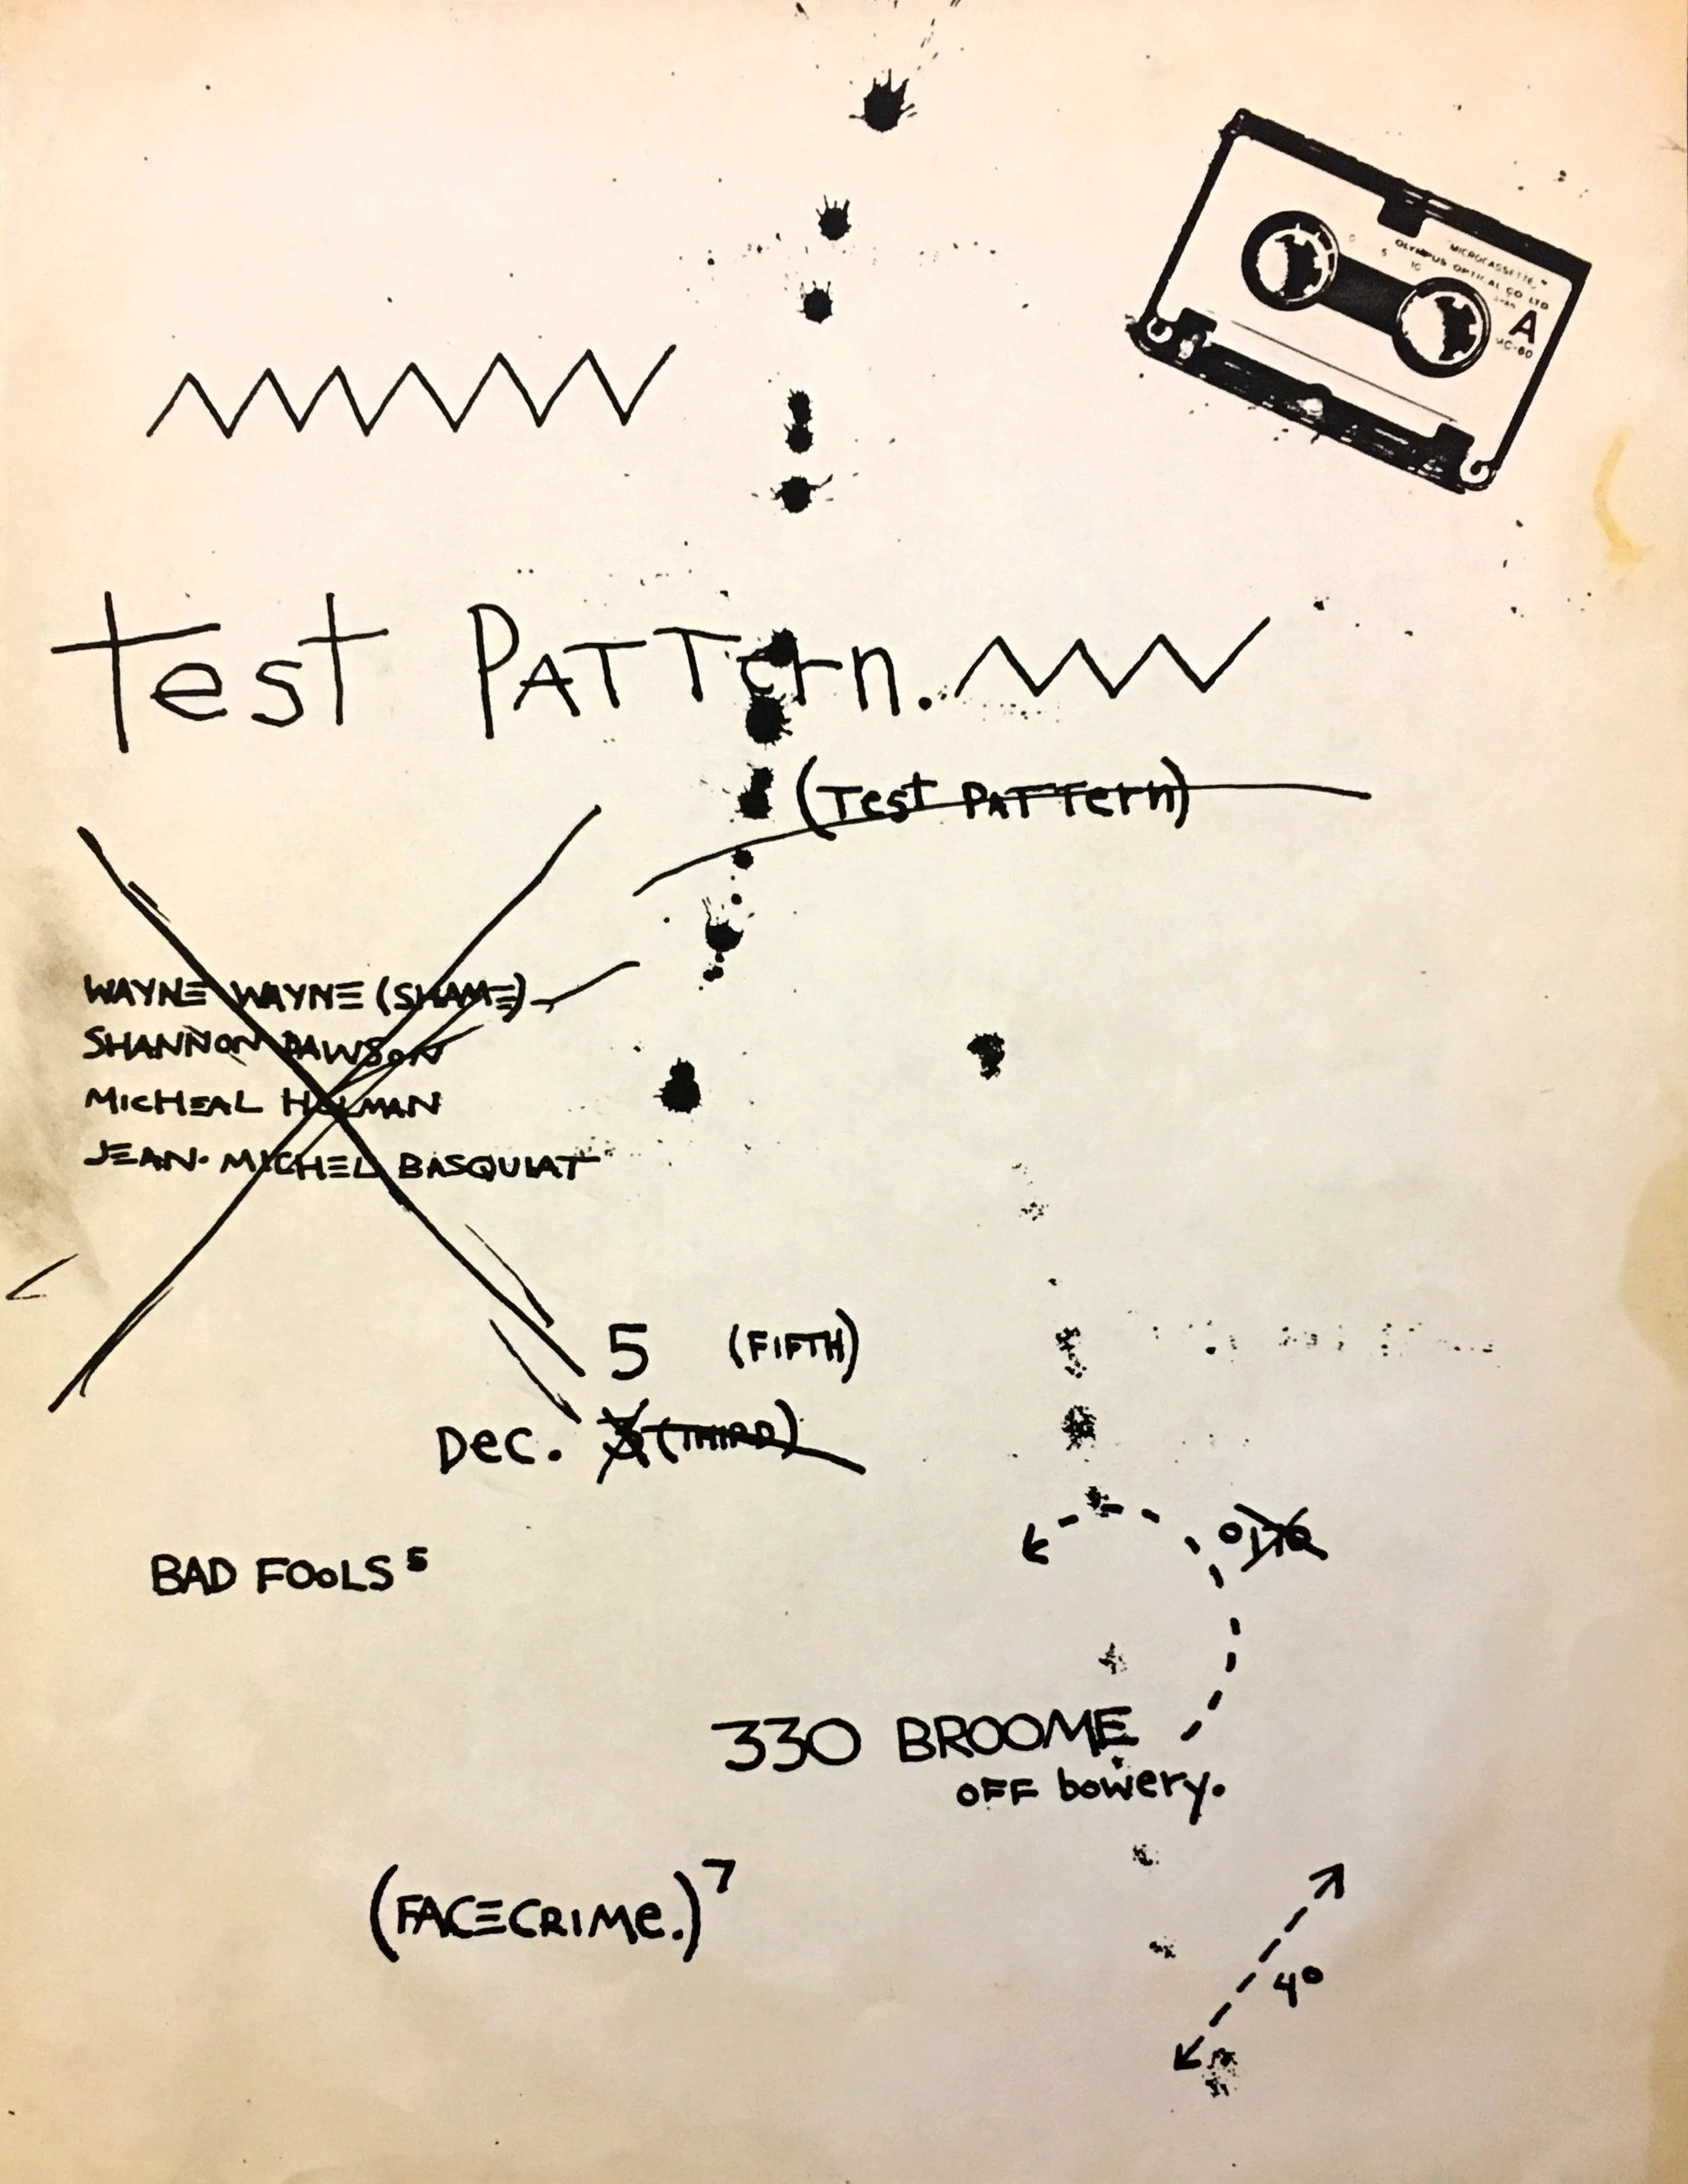 MICROCASSETTE™
OLYMPUS OPTICAL CO LTD
0 5 10
A
MC-60
Test Pattern.
(Test Pattern)
WAYNE WAYNE (SHAME)
SHANNON DAWSON
MICHEAL HOLMAN
JEAN-MICHEL BASQUIAT
5 (FIFTH)
Dec. 3 (THIRD)
BAD FOOLS 5
330 BROOME
OFF bowery.
(FACECRIMe.) 7
4°